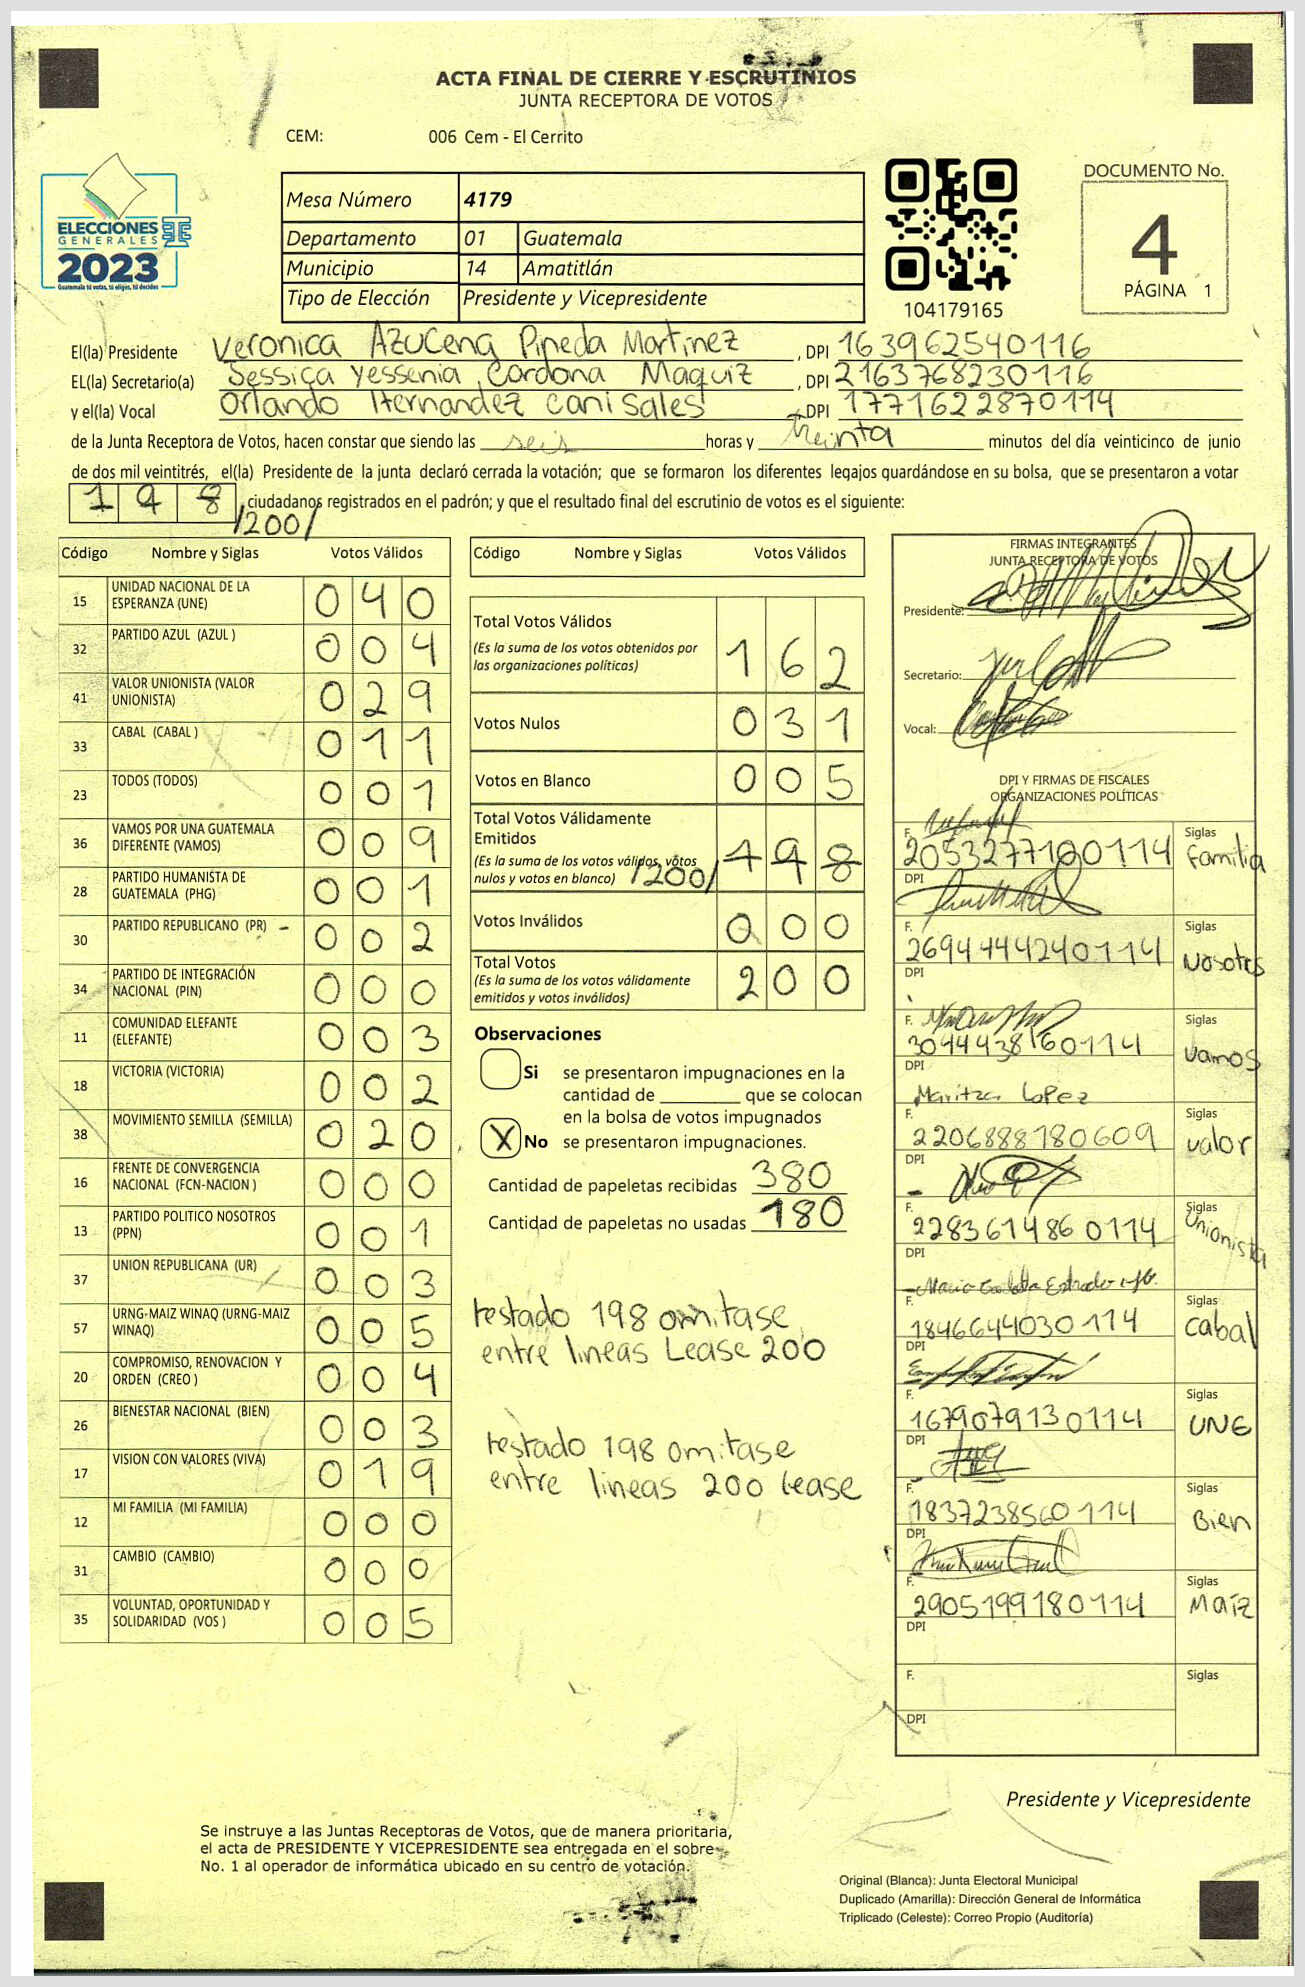 ACTA FINAL DE CIERRE Y ESCRUTINIOS
JUNTA RECEPTORA DE VOTOS
CEM: 006 Cem - El Cerrito
ELECCIONES
GENERALES
2023
Guatemala tú votas, tú eliges, tú decides
Mesa Número 4179
Departamento 01 Guatemala
Municipio 14 Amatitlán
Tipo de Elección Presidente y Vicepresidente
104179165
DOCUMENTO No.
4
PÁGINA 1
El(la) Presidente Veronica Azucena Pineda Martinez, DPI 163962540116
EL(la) Secretario(a) Jessica Yessenia Cardona Maquiz, DPI 2163768230116
y el(la) Vocal Orlando Hernandez Canisales, DPI 1771622870114
de la Junta Receptora de Votos, hacen constar que siendo las seis horas y treinta minutos del día veinticinco de junio
de dos mil veintitrés, el(la) Presidente de la junta declaró cerrada la votación; que se formaron los diferentes legajos guardándose en su bolsa, que se presentaron a votar
198 /200/ ciudadanos registrados en el padrón; y que el resultado final del escrutinio de votos es el siguiente:
Código Nombre y Siglas Votos Válidos
15 UNIDAD NACIONAL DE LA ESPERANZA (UNE) 040
32 PARTIDO AZUL (AZUL ) 004
41 VALOR UNIONISTA (VALOR UNIONISTA) 029
33 CABAL (CABAL ) 011
23 TODOS (TODOS) 001
36 VAMOS POR UNA GUATEMALA DIFERENTE (VAMOS) 009
28 PARTIDO HUMANISTA DE GUATEMALA (PHG) 001
30 PARTIDO REPUBLICANO (PR) 002
34 PARTIDO DE INTEGRACIÓN NACIONAL (PIN) 000
11 COMUNIDAD ELEFANTE (ELEFANTE) 003
18 VICTORIA (VICTORIA) 002
38 MOVIMIENTO SEMILLA (SEMILLA) 020
16 FRENTE DE CONVERGENCIA NACIONAL (FCN-NACION ) 000
13 PARTIDO POLITICO NOSOTROS (PPN) 001
37 UNION REPUBLICANA (UR) 003
57 URNG-MAIZ WINAQ (URNG-MAIZ WINAQ) 005
20 COMPROMISO, RENOVACION Y ORDEN (CREO ) 004
26 BIENESTAR NACIONAL (BIEN) 003
17 VISION CON VALORES (VIVA) 019
12 MI FAMILIA (MI FAMILIA) 000
31 CAMBIO (CAMBIO) 000
35 VOLUNTAD, OPORTUNIDAD Y SOLIDARIDAD (VOS ) 005
Código Nombre y Siglas Votos Válidos
Total Votos Válidos
(Es la suma de los votos obtenidos por las organizaciones políticas) 162
Votos Nulos 031
Votos en Blanco 005
Total Votos Válidamente Emitidos
(Es la suma de los votos válidos, votos nulos y votos en blanco) /200/ 198
Votos Inválidos 000
Total Votos
(Es la suma de los votos válidamente emitidos y votos inválidos) 200
Observaciones
Si se presentaron impugnaciones en la
cantidad de ________ que se colocan
en la bolsa de votos impugnados
X No se presentaron impugnaciones.
Cantidad de papeletas recibidas 380
Cantidad de papeletas no usadas 180
testado 198 omitase
entre lineas Lease 200
testado 198 omitase
entre lineas 200 Lease
FIRMAS INTEGRANTES
JUNTA RECEPTORA DE VOTOS
Presidente:
Secretario:
Vocal:
DPI Y FIRMAS DE FISCALES
ORGANIZACIONES POLÍTICAS
F. Siglas
2053277100114 familia
DPI
F. Siglas
2694444240114 Nosotros
DPI
F. Siglas
3044438160114 Vamos
DPI
Maritza Lopez
F. Siglas
2206888180609 valor
DPI
F. Siglas
2283614860114 Unionista
DPI
F. Siglas
1846644030114 Cabal
DPI
F. Siglas
1679079130114 UNE
DPI
F. Siglas
1837238560114 Bien
DPI
F. Siglas
2905199180114 Maiz
DPI
F. Siglas
DPI
Presidente y Vicepresidente
Se instruye a las Juntas Receptoras de Votos, que de manera prioritaria,
el acta de PRESIDENTE Y VICEPRESIDENTE sea entregada en el sobre
No. 1 al operador de informática ubicado en su centro de votación.
Original (Blanca): Junta Electoral Municipal
Duplicado (Amarilla): Dirección General de Informática
Triplicado (Celeste): Correo Propio (Auditoría)